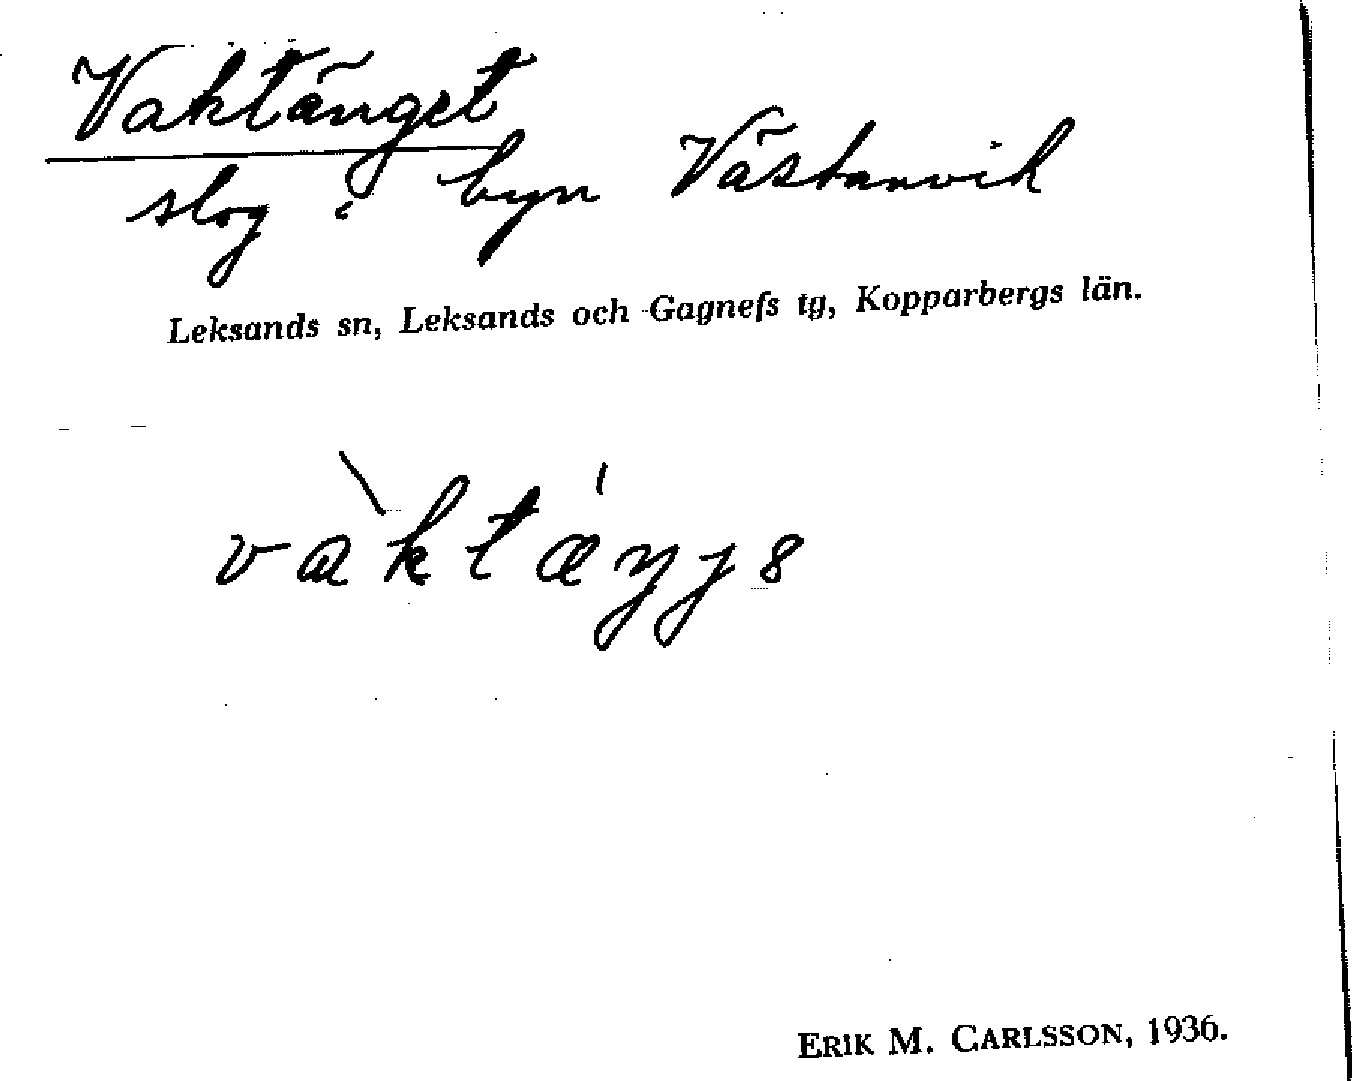 Vaktänget
slog i byn Västanvik
Leksands sn, Leksands och Gagnefs tg, Kopparbergs län.
vàktæ̍ŋgə
ERIK M. CARLSSON, 1936.